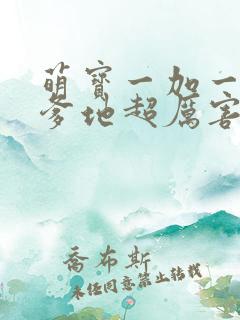 萌宝一加一
爹地超厉害
乔布斯
未经同意禁止转载